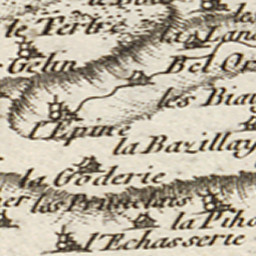 le Tertre
la Lan
Gelin
Bel
les Biau
l'Epine
la Bazillay
la Goderie
la Piho
l'Echasserie